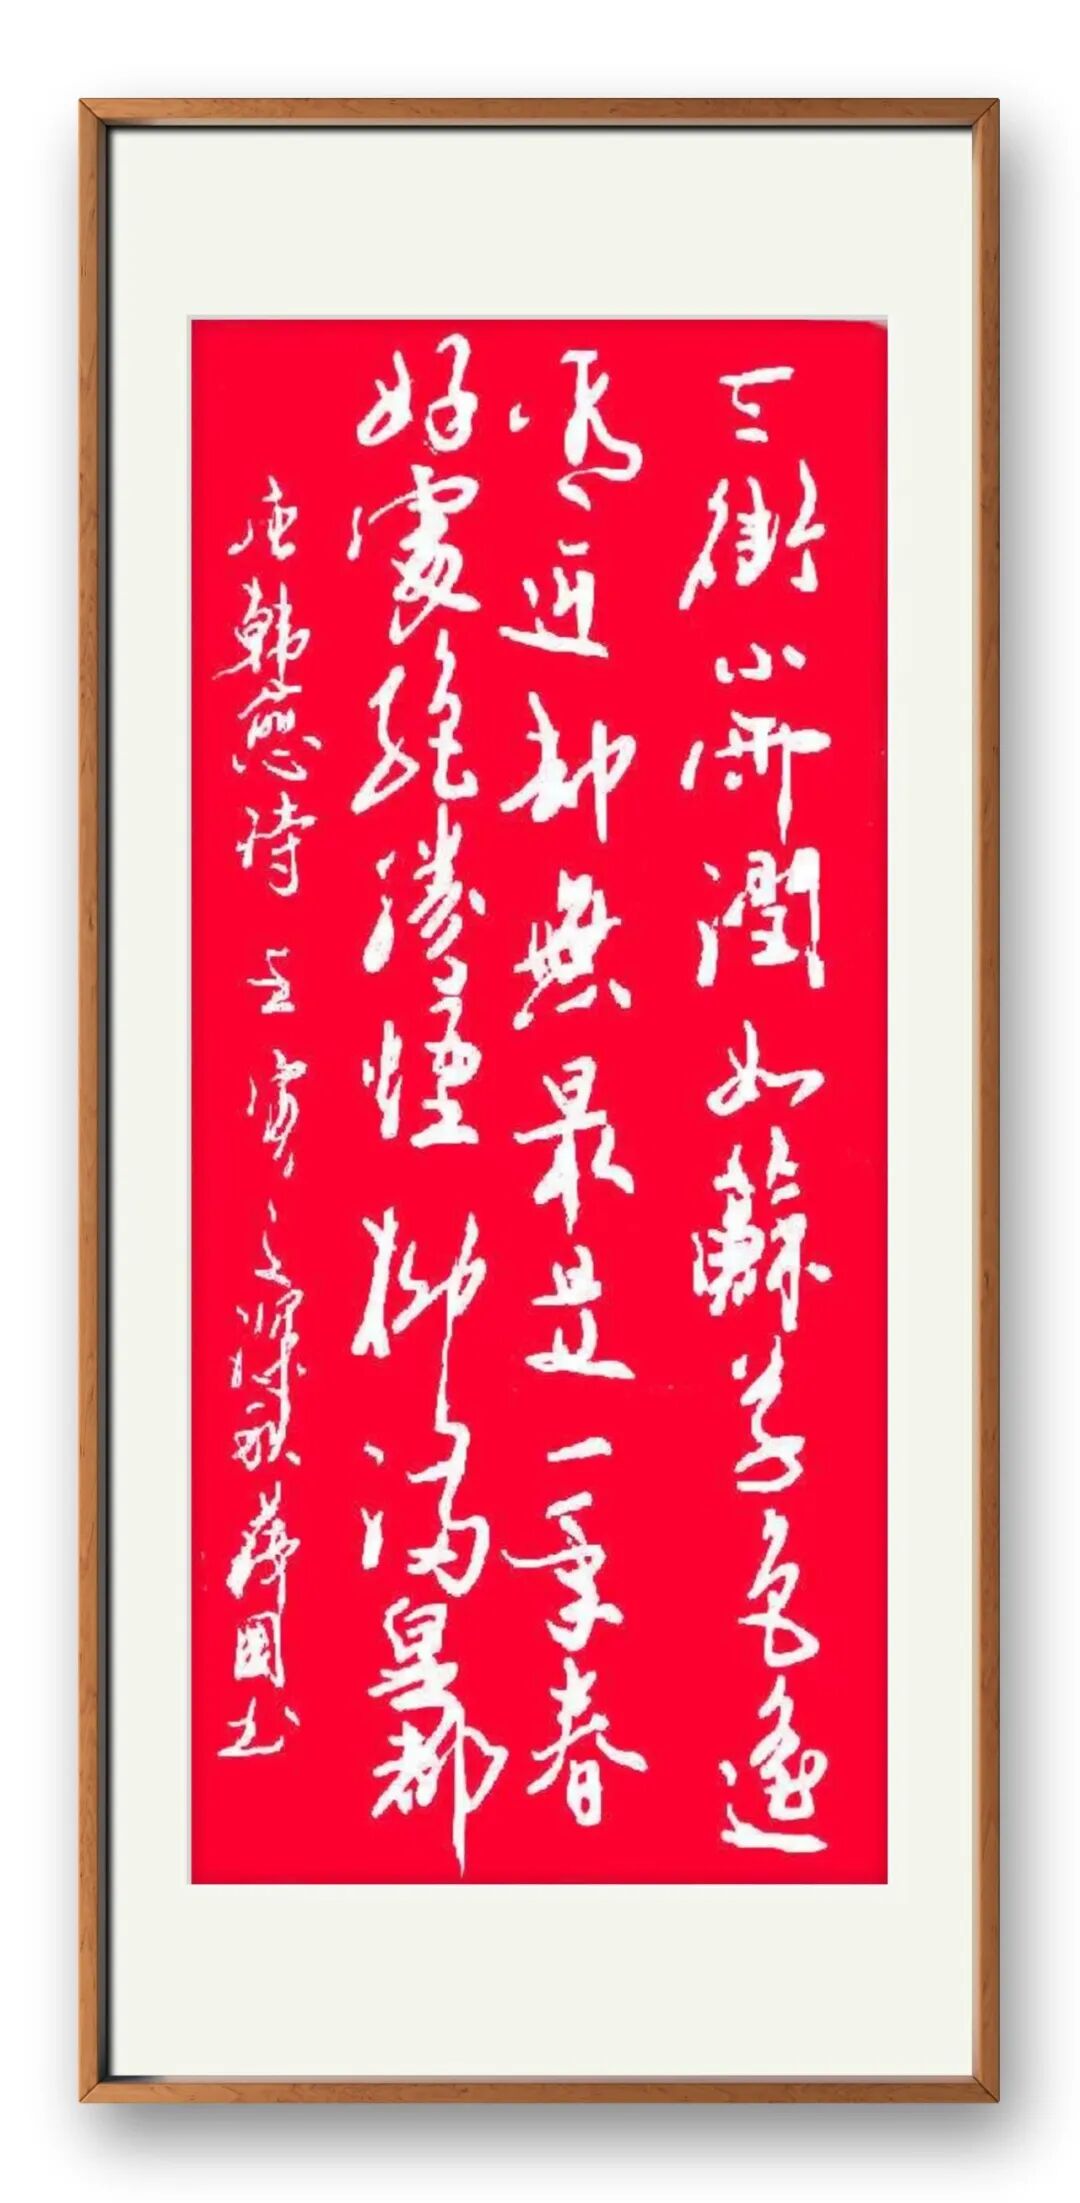 天街小雨潤如蘇草色遙
看近却無最是一年春
好處絕勝煙柳滿皇都
唐韓愈詩 壬寅之深秋 國书